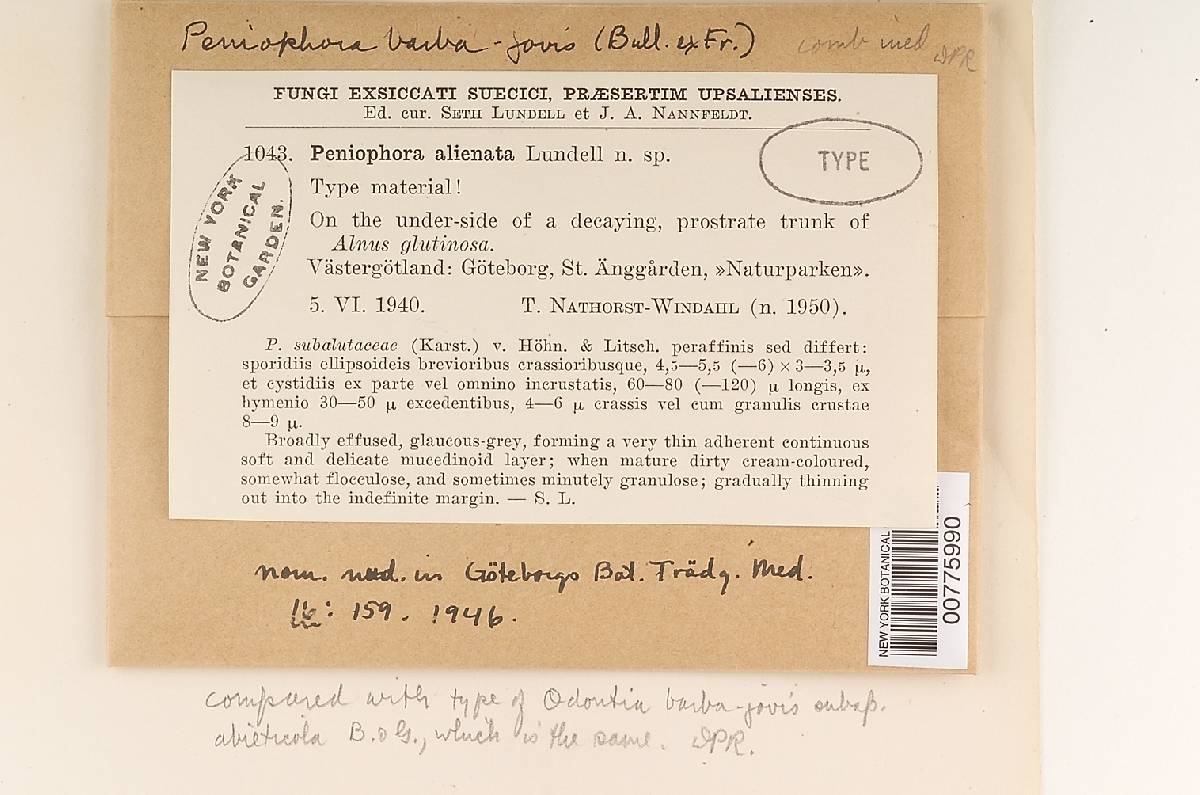 Peniophora barba-jovis (Bull. ex Fr.) comb ined DPR
FUNGI EXSICCATI SUECICI, PRÆSERTIM UPSALIENSES.
Ed. cur. Seth Lundell et J. A. Nannfeldt.
1043. Peniophora alienata Lundell n. sp.
TYPE
Type material!
NEW YORK
BOTANICAL
GARDEN.
On the under-side of a decaying, prostrate trunk of
Alnus glutinosa.
Västergötland: Göteborg, St. Änggården, »Naturparken».
5. VI. 1940. T. Nathorst-Windahl (n. 1950).
P. subalutaceae (Karst.) v. Höhn. & Litsch. peraffinis sed differt:
sporidiis ellipsoideis brevioribus crassioribusque, 4,5—5,5 (—6) × 3—3,5 μ,
et cystidiis ex parte vel omnino incrustatis, 60—80 (—120) μ longis, ex
hymenio 30—50 μ excedentibus, 4—6 μ crassis vel cum granulis crustae
8—9 μ.
Broadly effused, glaucous-grey, forming a very thin adherent continuous
soft and delicate mucedinoid layer; when mature dirty cream-coloured,
somewhat flocculose, and sometimes minutely granulose; gradually thinning
out into the indefinite margin. — S. L.
NEW YORK BOTANICAL
00775990
nom. nud. in Göteborgs Bot. Trädg. Med.
16: 159. 1946.
compared with type of Odontia barba-jovis subsp.
abieticola B. & G., which is the same. DPR.